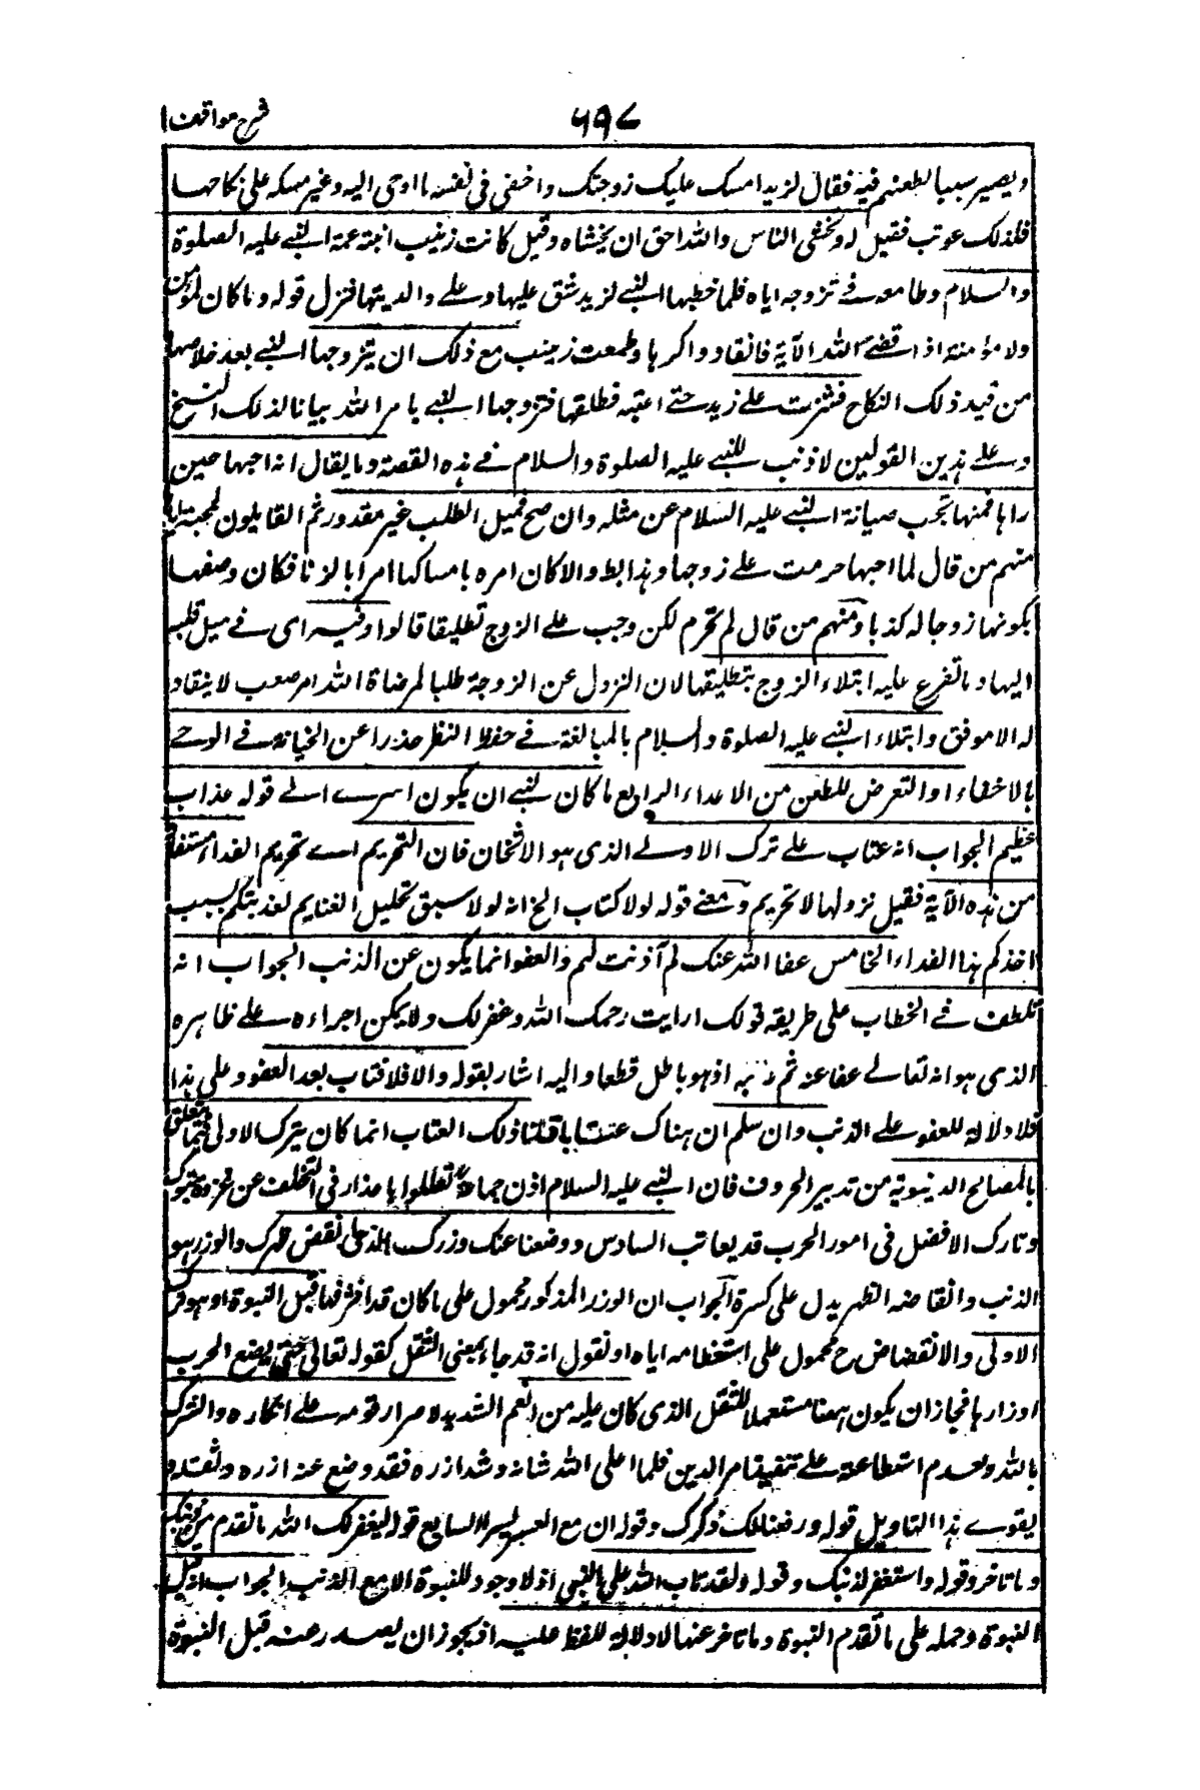 شرح مواقف
٦٩٨
ويصير سببا لطعنهم فيه فقال لزيد امسك عليك زوجك واخفى فى نفسه ما اوحى اليه وغير مسكه على نكاحها
فلذلك عوتب فقيل له وتخفى الناس والله احق ان تخشاه وقيل كانت زينب ابنة عمة النبي عليه الصلوة
والسلام وطامعه في تزوجه اياه فلما خطبها النبي لزيد شق عليها وعلى والديتها فنزل قوله وما كان لمؤمن
ولا مؤمنة اذا قضے الله الآية فانقادوا كرها وطمعت زينب مع ذلك ان يتزوجها النبي بعد خلاصها
من قيد ذلك النكاح فنشزت على زيد حتى اعتبه فطلقها فتزوجها النبي بامر الله بيانا لذلك النسخ
وعلى هذين القولين لا ذنب للنبي عليه الصلوة والسلام في هذه القصة وما يقال انه احبها حين
راها فمنها تجب صيانة النبي عليه السلام عن مثله وان صح فميل الطلب غير مقدور ثم القايلون لمحبته اياها
منهم من قال لما احبها حرمت على زوجها وهذا بط والا كان امره بامساكها امرا بالزنا فكان وصفها
بكونها زوجا له كذبا ومنهم من قال لم تحرم لكن وجب على الزوج تطليقا قالوا وفيه اى في ميل قلبه
اليها وما تفرع عليه ابتلاء الزوج بتطليقها لان النزول عن الزوجة طلبا لمرضاة الله امر صعب لا ينقاد
له الا موفق وابتلاء النبي عليه الصلوة والسلام بالمبالغة في حفظ النظر حذرا عن الخيانة في الوحي
بالاخفاء او التعرض للطعن من الاعداء الرابع ما كان لنبي ان يكون اسرے الى قوله عذاب
عظيم الجواب انه عتاب على ترك الاولى الذى هو الاثخان فان التحريم اى تحريم الفداء مستفاد
من هذه الآية فقيل نزولها لا تحريم ومعنى قوله لولا كتاب الخ انه لولا سبق تحليل الغنايم لعذبتكم بسبب
اخذكم هذا الفداء الخامس عفا الله عنك لم آذنت لهم والعفو انما يكون عن الذنب الجواب انه
تلطف في الخطاب على طريقه قولك ارايت رحمك الله وغفر لك ولا يمكن اجراءه على ظاهره
الذى هو انه تعالى عفا عنه ثم اذ هو باطل قطعا واليه اشار بقوله والا فلا عتاب بعد العفو وعلى هذا
فلا دلالة للعفو على الذنب وان سلم ان هناك عتابا قلنا ذلك العتاب انما كان بترك الاولى فيما يتعلق
بالمصالح الدنيوية من تدبير الحروف فان النبي عليه السلام اذن جماعة تعللوا باعذار فى التخلف عن غزوة تبوك
وتارك الافضل فى امور الحرب قد يعاتب السادس ووضعنا عنك وزرك الذى انقض ظهرك والوزر هو
الذنب وانقاضه الظهر يدل على كسرة الجواب ان الوزر المذكور محمول على ما كان قد اقترفه قبل النبوة او هو ترك
الاولى والانقضاض ح محمول على استعظامه اياه او نقول انه قد جاء بمعنى الثقل كقوله تعالى حتى يضع الحرب
اوزارها فجاز ان يكون ههنا مستعملا للثقل الذى كان عليه من الغم الشديد لاصرار قومه على انكاره والشرك
بالله ولعدم استطاعته على تنفيذ امر الدين فلما اعلى الله شانه وشد ازره فقد وضع عنه ازره وثقله و
يقوے هذا التاويل قوله ورفعنا لك ذكرك وقوله ان مع العسر يسرا السابع قوله ليغفر لك الله ما تقدم من ذنبك
وما تاخر وقوله واستغفر لذنبك وقوله ولقد تاب الله على النبي اذ لا وجود للتوبة الا مع الذنب الجواب انه قبل
النبوة وحمله على ما تقدم النبوة وما تاخر عنها لا دلالة للفظ عليه اذ يجوز ان يصدر عنه قبل النبوة